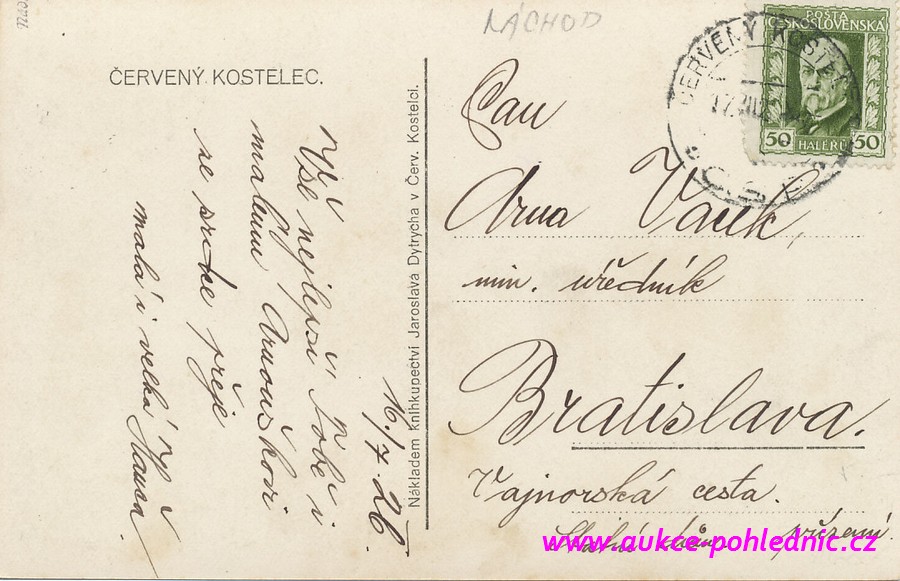 NÁCHOD
ČERVENÝ KOSTELEC.
Vše nejlepší Tobě i
malému Arnouškovi
ze srdce přeje
malá i velká Hanča
16/7-26.
Nákladem Knihkupectví Jaroslava Dytrycha v Červ. Kostelci.
POŠTA
ČESKOSLOVENSKÁ
50 50
HALÉŘŮ
ČERVENÝ KOSTEL
17.VII
Pan
Arna Vacek,
min. úředník
Bratislava.
Vajnorská cesta.
Statní dům přízemí
www.aukce-pohlednic.cz